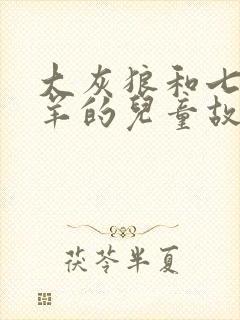 大灰狼和七
羊的兒童故
茯苓半夏